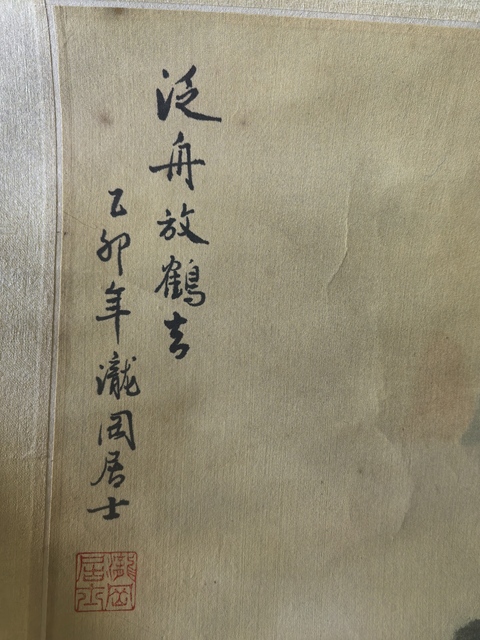 泛舟放鶴去
乙卯年瀧岡居士
瀧岡居士